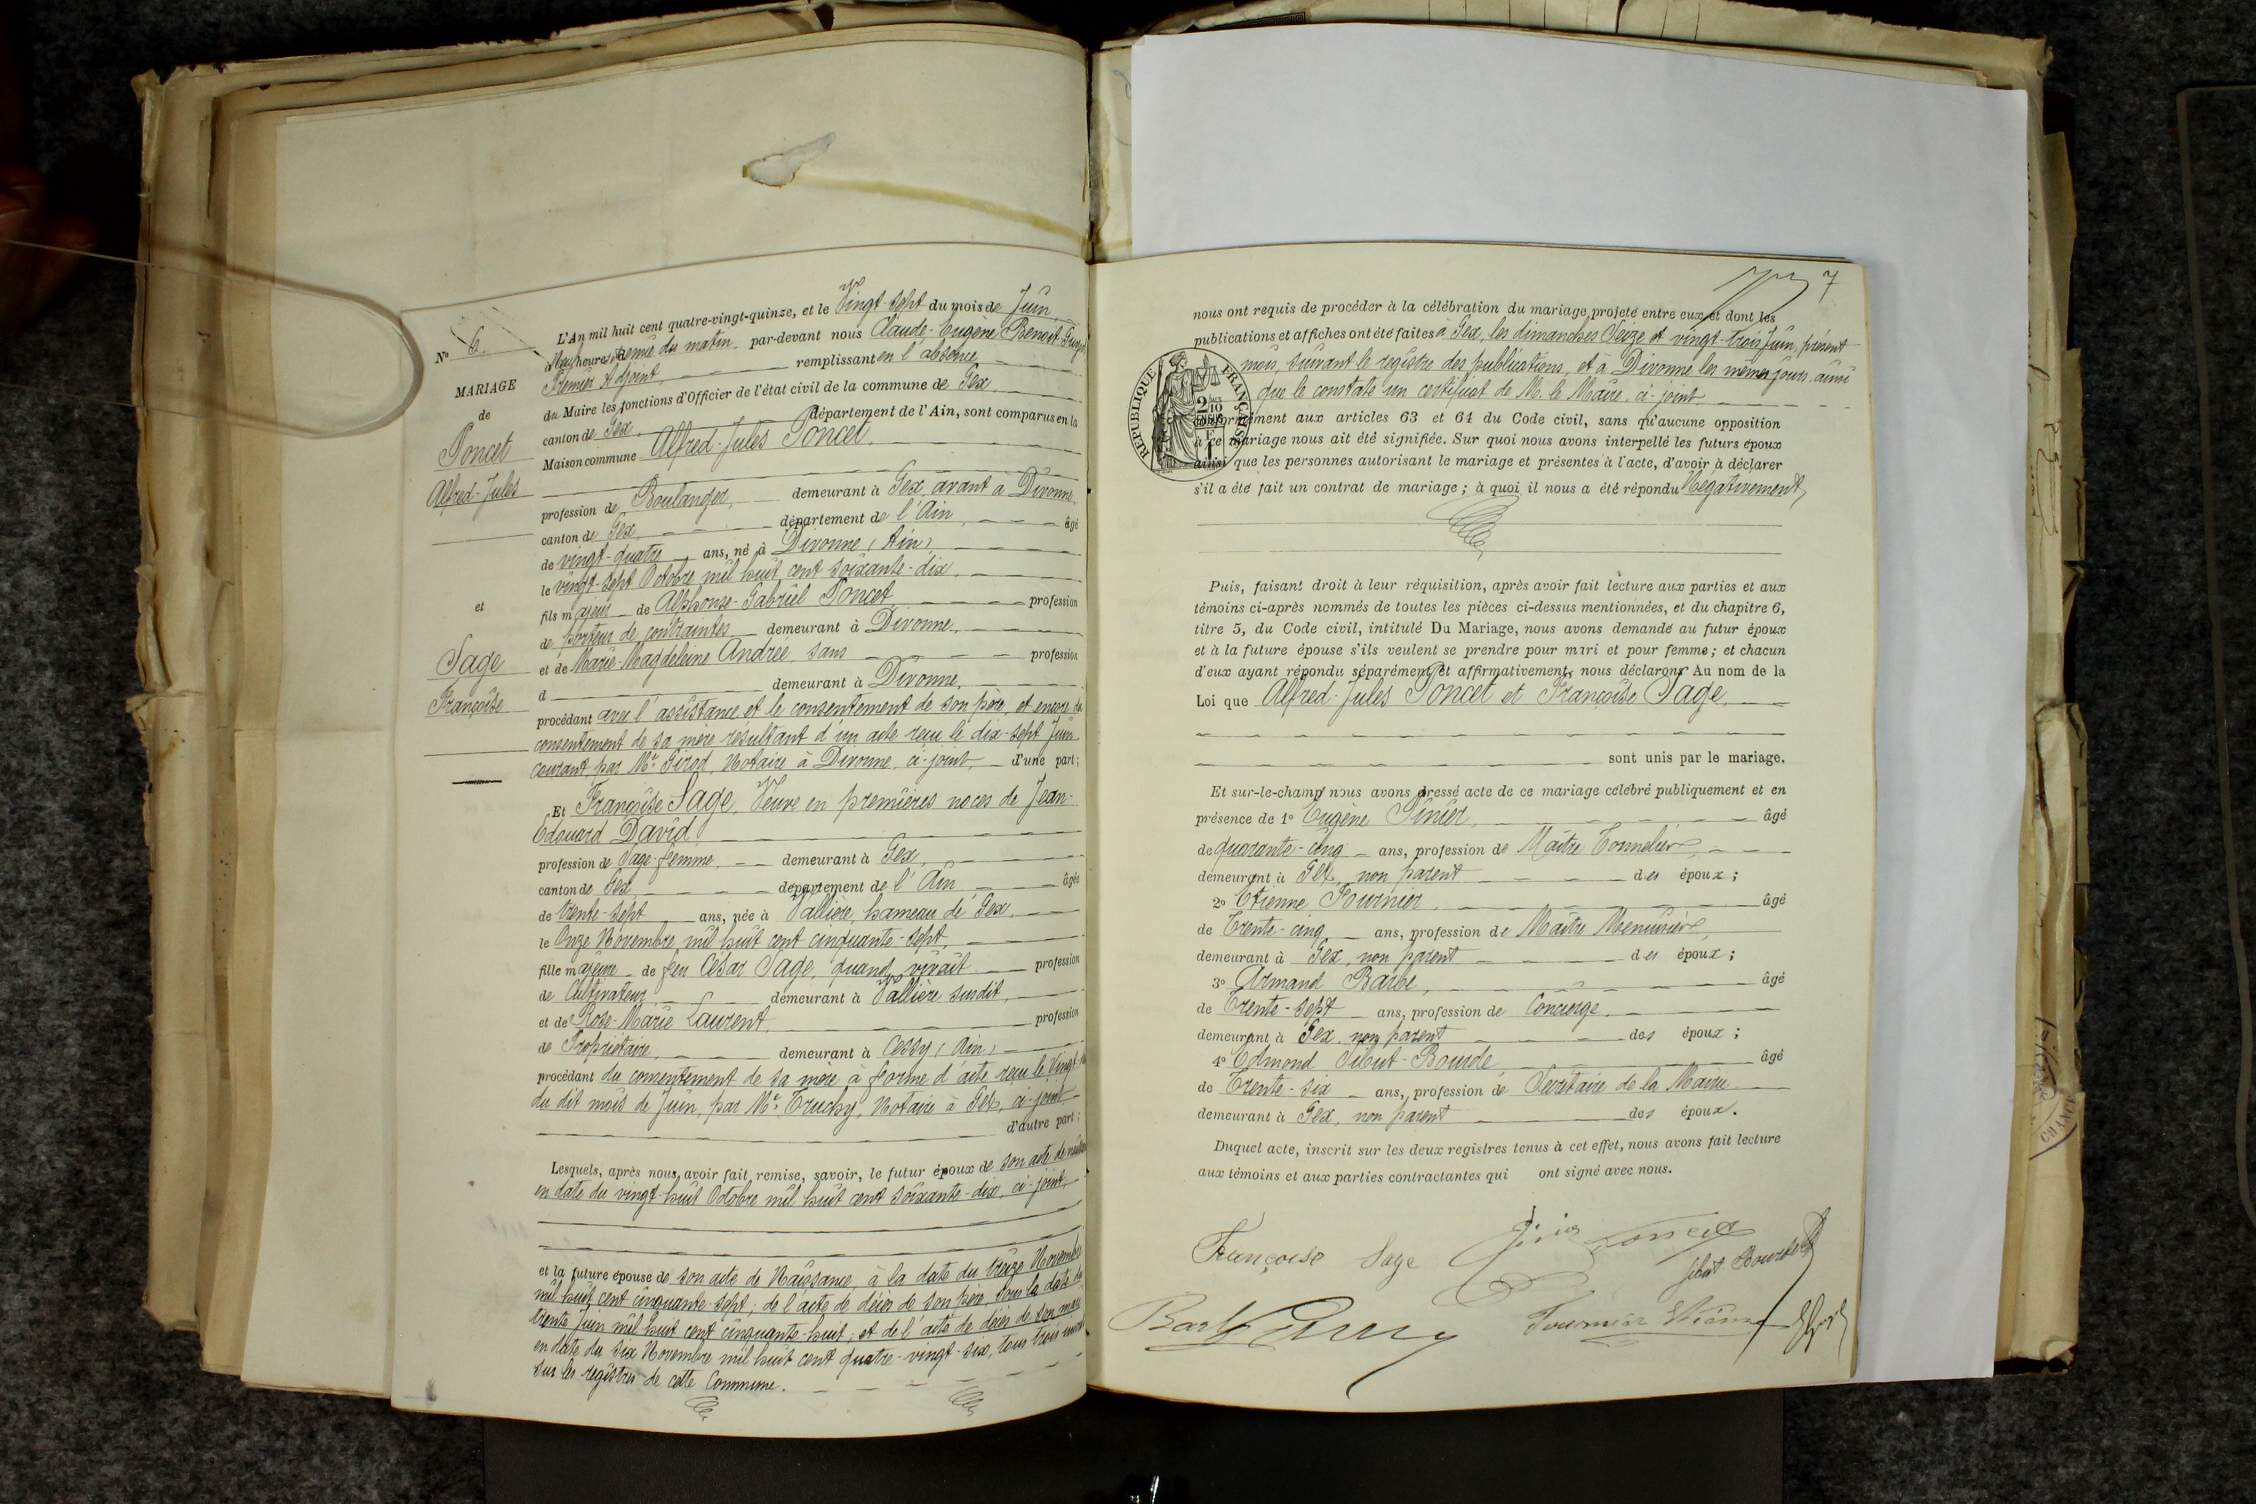 N° 6.
MARIAGE
de
Poncet
Alfred-Jules
et
Sage
Françoise
L'An mil huit cent quatre-vingt-quinze, et le Vingt-sept du mois de Juin
heures du matin. par-devant nous Claude-Eugène Benoit
Premier Adjoint, remplissant en l'absence
du Maire les fonctions d'Officier de l'état civil de la commune de Gex,
canton de Gex, département de l'Ain, sont comparus en la
Maison commune Alfred-Jules Poncet,
profession de Boulanger, demeurant à Gex, avant à Divonne,
canton de Gex, département de l'Ain, âgé
de vingt-quatre ans, né à Divonne (Ain),
le vingt-sept Octobre mil huit cent soixante-dix,
fils majeur de Alphonse-Gabriel Poncet profession
de porteur de contraintes demeurant à Divonne,
et de Marie-Magdeleine Andrée, sans profession
d demeurant à Divonne,
procédant avec l'assistance et le consentement de son père, et encore du
consentement de sa mère résultant d'un acte reçu le dix-sept Juin
courant, par Me. Girod, Notaire à Divonne, ci-joint, d'une part;
Et Françoise Sage, Veuve en premières noces de Jean-
Edouard David
profession de Sage-femme, demeurant à Gex,
canton de Gex département de l'Ain âgée
de trente-sept ans, née à Vallière, hameau de Gex,
le Onze Novembre mil huit cent cinquante-sept,
fille majeure de feu César Sage, quand vivait profession
de Cultivateur, demeurant à Vallière susdit,
et de Rose-Marie Laurent, profession
de Propriétaire, demeurant à Cessy (Ain)
procédant du consentement de sa mère à forme d'acte reçu le Vingt-
du dit mois de Juin, par Me. Truchy, Notaire à Gex, ci-joint
d'autre part;
Lesquels, après nous avoir fait remise, savoir, le futur époux de son acte de
en date du vingt-huit Octobre mil huit cent soixante-dix, ci-joint,
et la future épouse de son acte de Naissance, à la date du treize Novembre
mil huit cent cinquante-sept; de l'acte de décès de son père, sous la date du
trente Juin mil huit cent cinquante-huit; et de l'acte de décès de son mari
en date du six Novembre mil huit cent quatre-vingt-six, tous trois
sur les registres de cette Commune.
7
nous ont requis de procéder à la célébration du mariage projeté entre eux et dont les
publications et affiches ont été faites à Gex, les dimanches Seize et vingt-trois Juin, présent
mois, suivant le registre des publications, et à Divonne les mêmes jours, ainsi
que le constate un certificat de M. le Maire, ci-joint,
REPUBLIQUE FRANÇAISE
conformément aux articles 63 et 64 du Code civil, sans qu'aucune opposition
à ce mariage nous ait été signifiée. Sur quoi nous avons interpellé les futurs époux
ainsi que les personnes autorisant le mariage et présentes à l'acte, d'avoir à déclarer
s'il a été fait un contrat de mariage; à quoi il nous a été répondu Négativement,
Puis, faisant droit à leur réquisition, après avoir fait lecture aux parties et aux
témoins ci-après nommés de toutes les pièces ci-dessus mentionnées, et du chapitre 6,
titre 5, du Code civil, intitulé Du Mariage, nous avons demandé au futur époux
et à la future épouse s'ils veulent se prendre pour mari et pour femme; et chacun
d'eux ayant répondu séparément et affirmativement, nous déclarons Au nom de la
Loi que Alfred-Jules Poncet et Françoise Sage,
sont unis par le mariage.
Et sur-le-champ nous avons dressé acte de ce mariage célébré publiquement et en
présence de 1° Eugène Pinier, âgé
de quarante-cinq ans, profession de Maître Tonnelier,
demeurant à Gex, non parent des époux;
2° Etienne Fournier, âgé
de Trente-cinq ans, profession de Maître Menuisier,
demeurant à Gex, non parent des époux;
3° Armand Barbe, âgé
de Trente-sept ans, profession de Concierge,
demeurant à Gex, non parent des époux;
4° Edmond Sibut-Bourde âgé
de Trente-six ans, profession de Secrétaire de la Mairie
demeurant à Gex, non parent des époux.
Duquel acte, inscrit sur les deux registres tenus à cet effet, nous avons fait lecture
aux témoins et aux parties contractantes qui ont signé avec nous.
Françoise Sage
Poncet
Sibut Bourde
Fournier Etienne